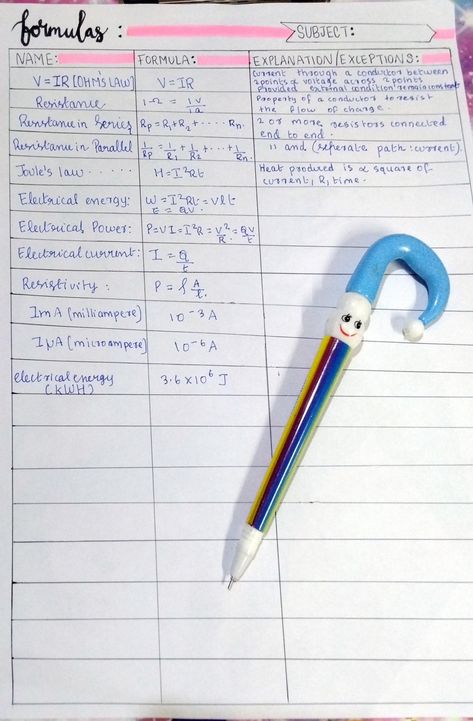 formulas :
SUBJECT:
NAME: FORMULA: EXPLANATION/EXCEPTIONS:
V=IR [OHM'S LAW] V=IR current through a conductor between
2 points ∝ voltage across 2 points
Provided external condition remain constant
Resistance 1Ω = 1V/1A Property of a conductor to resist
the flow of charge.
Resistance in Series Rp=R1+R2+ ····· Rn. 2 or more resistors connected
end to end.
Resistance in Parallel 1/Rp = 1/R1 + 1/R2 + ··· + 1/Rn. 11 and (seperate path: current).
Joule's law ······ H=I²Rt Heat produced is ∝ square of
current, R, time.
Electrical energy: W = I²Rt = VIt
E = QV.
Electrical Power: P=VI=I²R=V²/R=QV/t
Electrical current: I = Q/t
Resistivity: P = ʃ A/l.
1mA (milliampere) 10-3 A
1μA (microampere) 10-6 A
electrical energy 3.6×10⁶ J
(KWH)